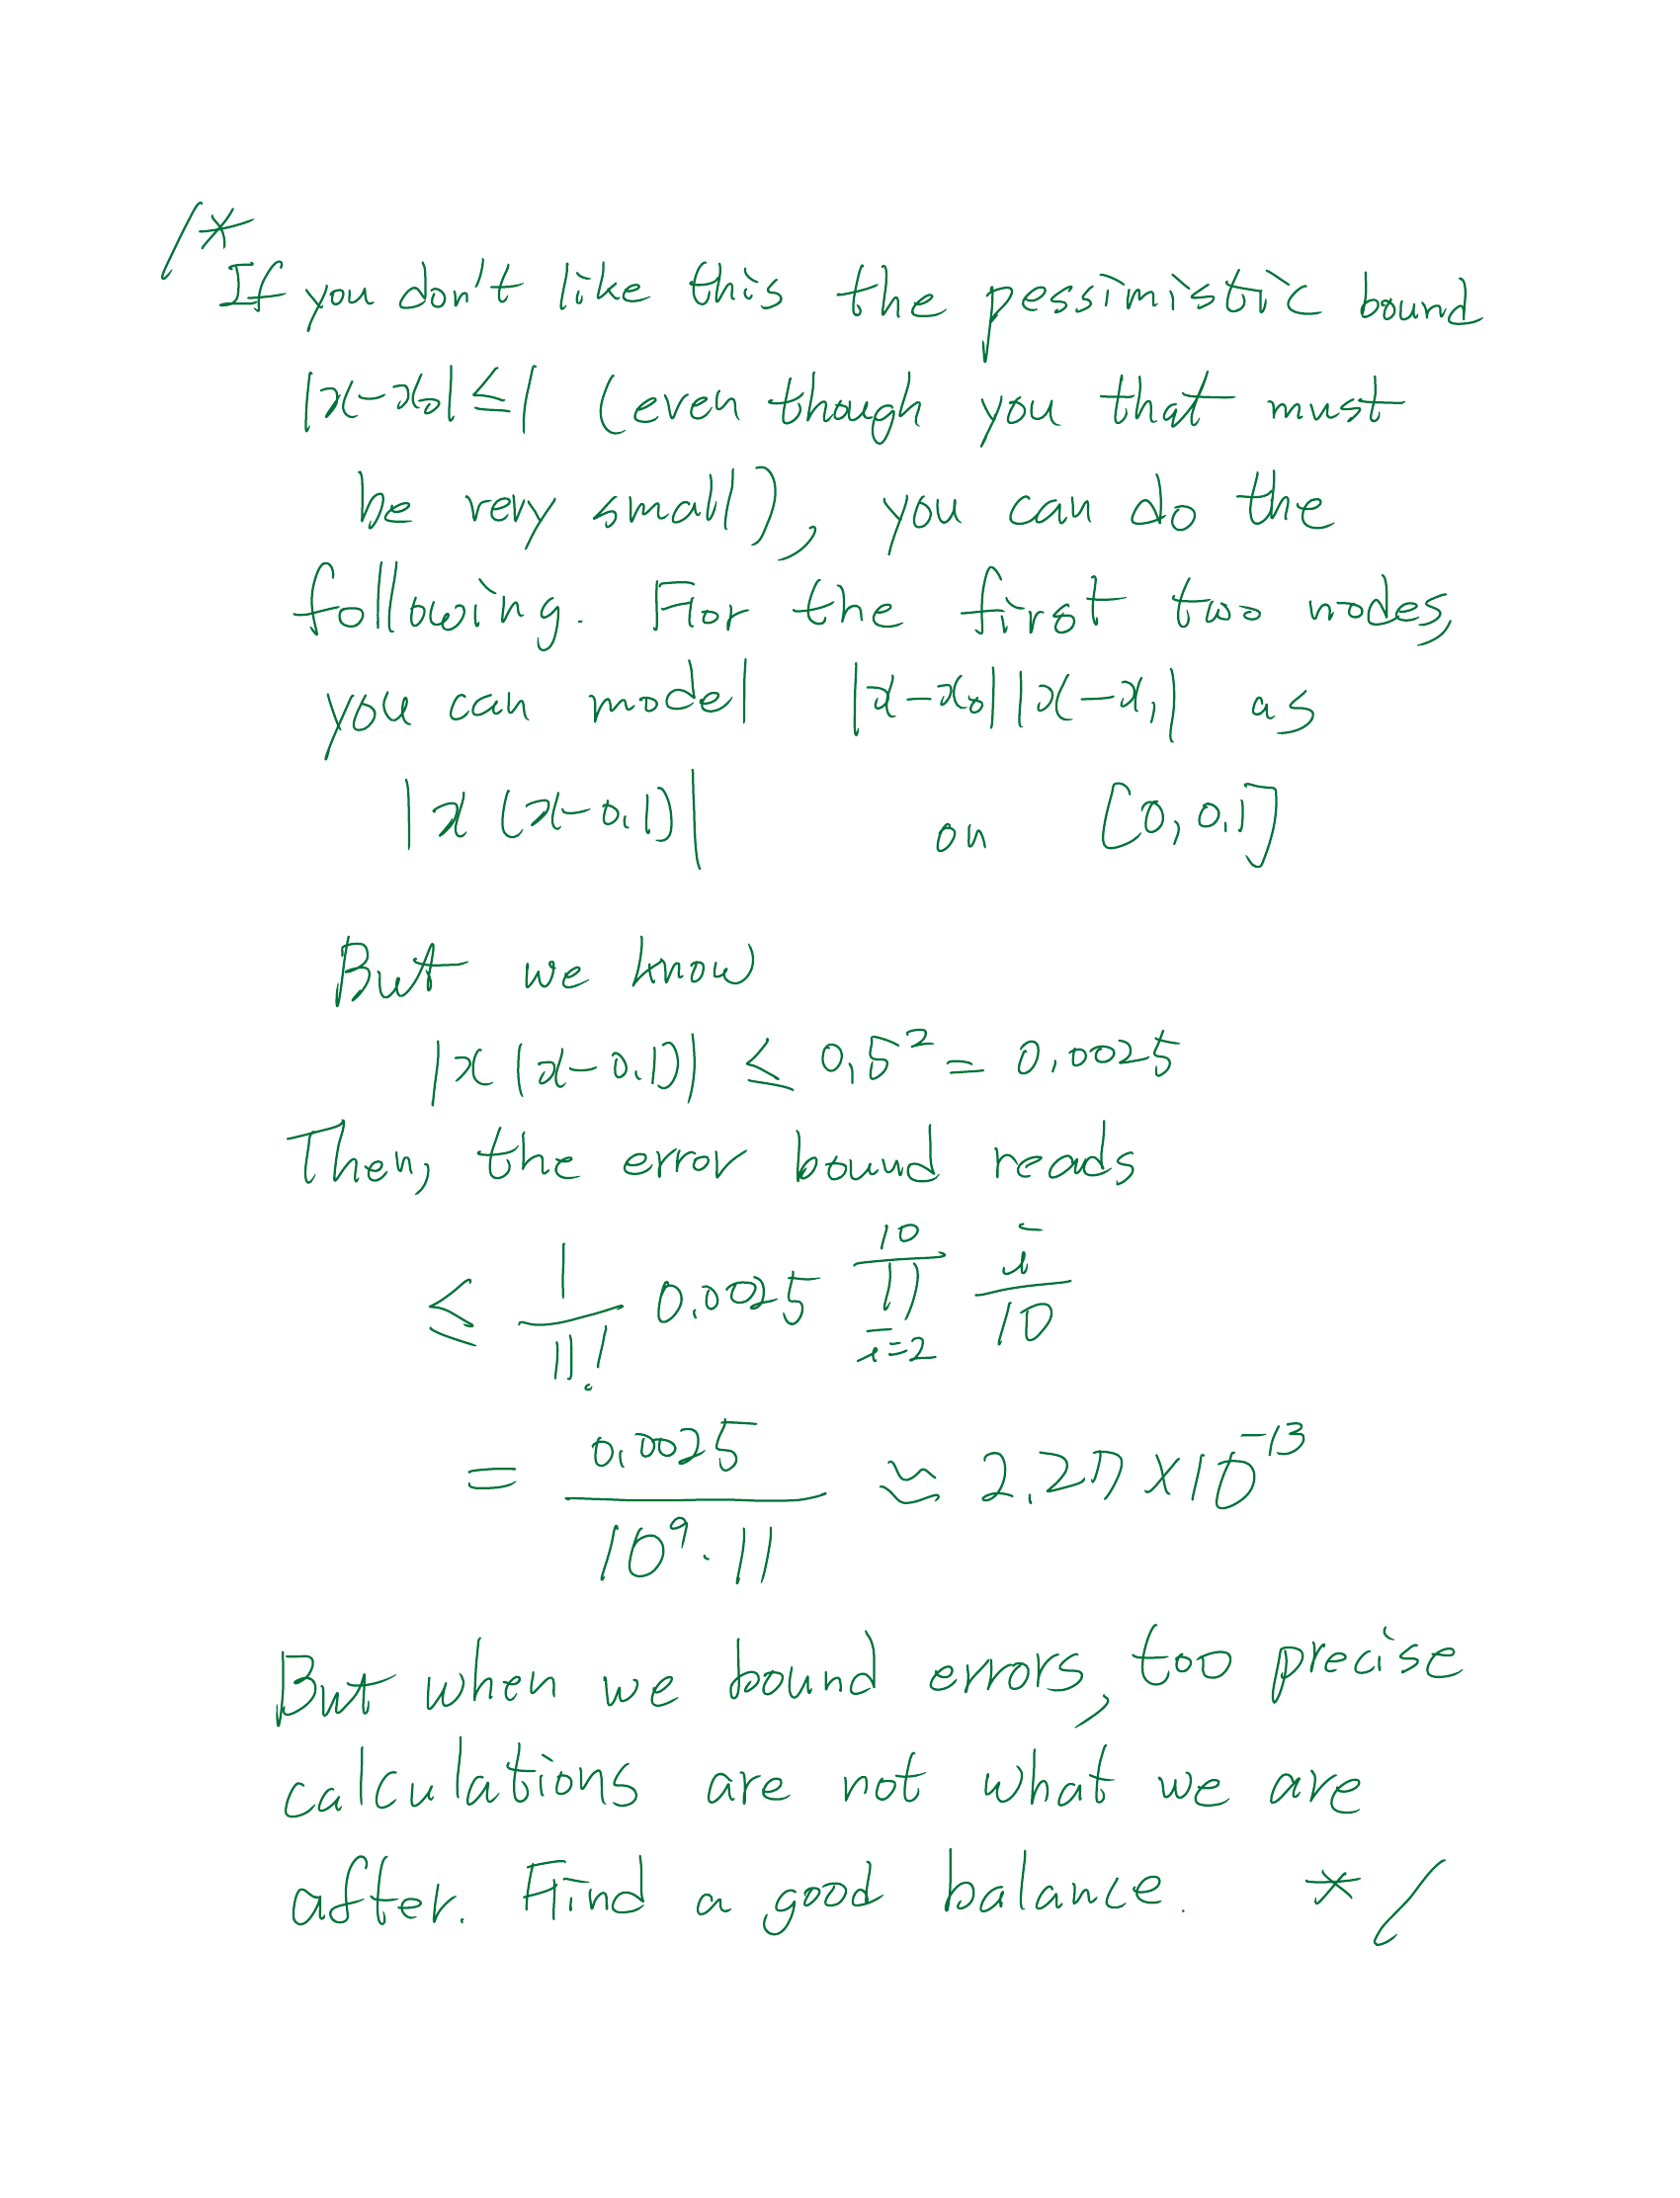 /*
If you don't like this the pessimistic bound
|x-x₀| ≤ 1 (even though you that must
be very small), you can do the
following. For the first two nodes,
you can model |x-x₀||x-x₁| as
|x(x-0.1)| on [0, 0.1]
But we know
|x(x-0.1)| ≤ 0.5² = 0.0025
Then, the error bound reads
≤ \frac{1}{11!} 0.0025 \prod_{i=2}^{10} \frac{i}{10}
= \frac{0.0025}{10⁹·11} ≃ 2.27 × 10⁻¹³
But when we bound errors, too precise
calculations are not what we are
after. Find a good balance. */